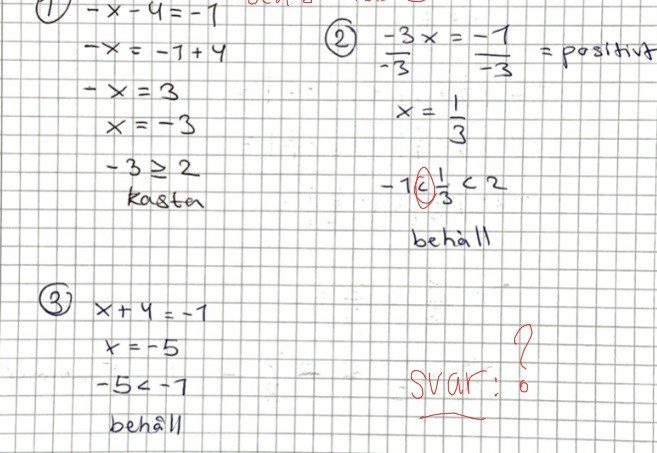 ① -x-4=-1
-x = -1+4
-x = 3
x = -3
-3 ≥ 2
kasta
② -3x/-3 = -1/-3 = positivt
x = 1/3
-1 < 1/3 < 2
behåll
③ x+4=-1
x = -5
-5 < -1
behåll
svar: ?